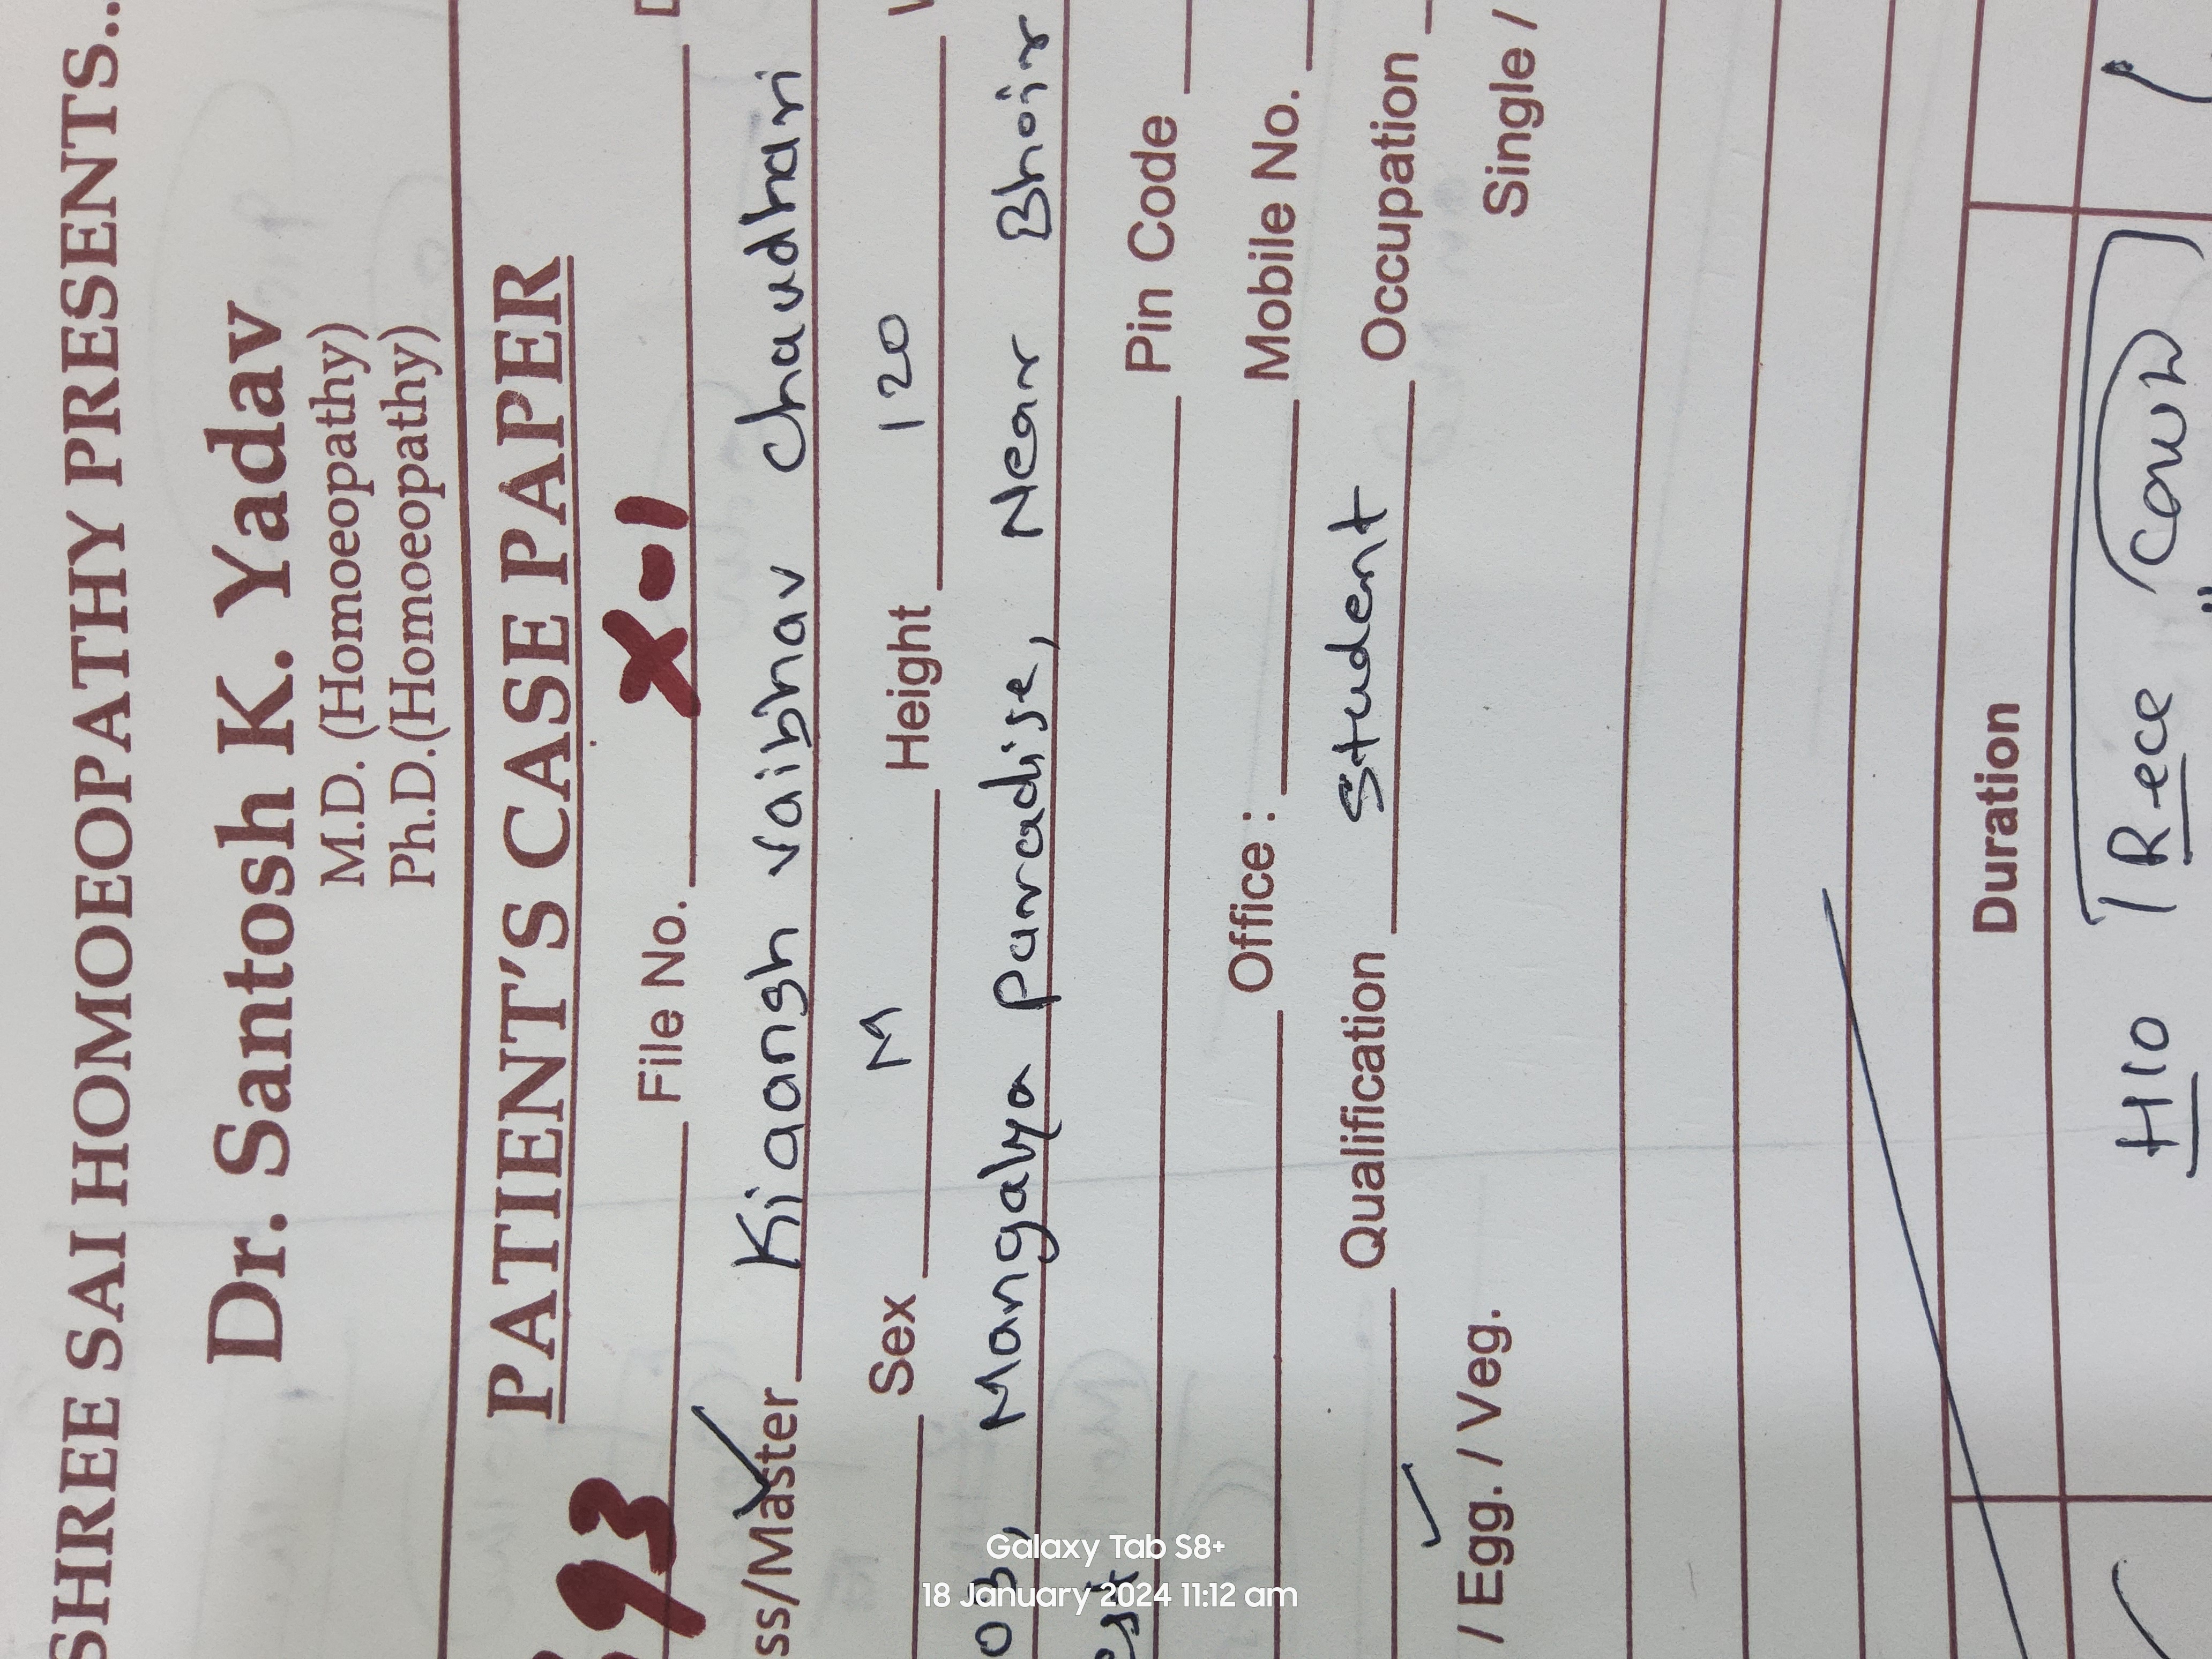 SHREE SAI HOMOEOPATHY PRESENTS..
Dr. Santosh K. Yadav
M.D. (Homoeopathy)
Ph.D.(Homoeopathy)
PATIENT'S CASE PAPER
93 File No. X-1
ss/Master Kiaansh vaibhav chaudhari
Sex M Height 120
03, Mangalya paradise, Near Bhoir
est
Pin Code
Office : Mobile No.
Qualification student Occupation
/ Egg. / Veg. Single /
Duration
H/o Rece
Galaxy Tab S8+
18 January 2024 11:12 am